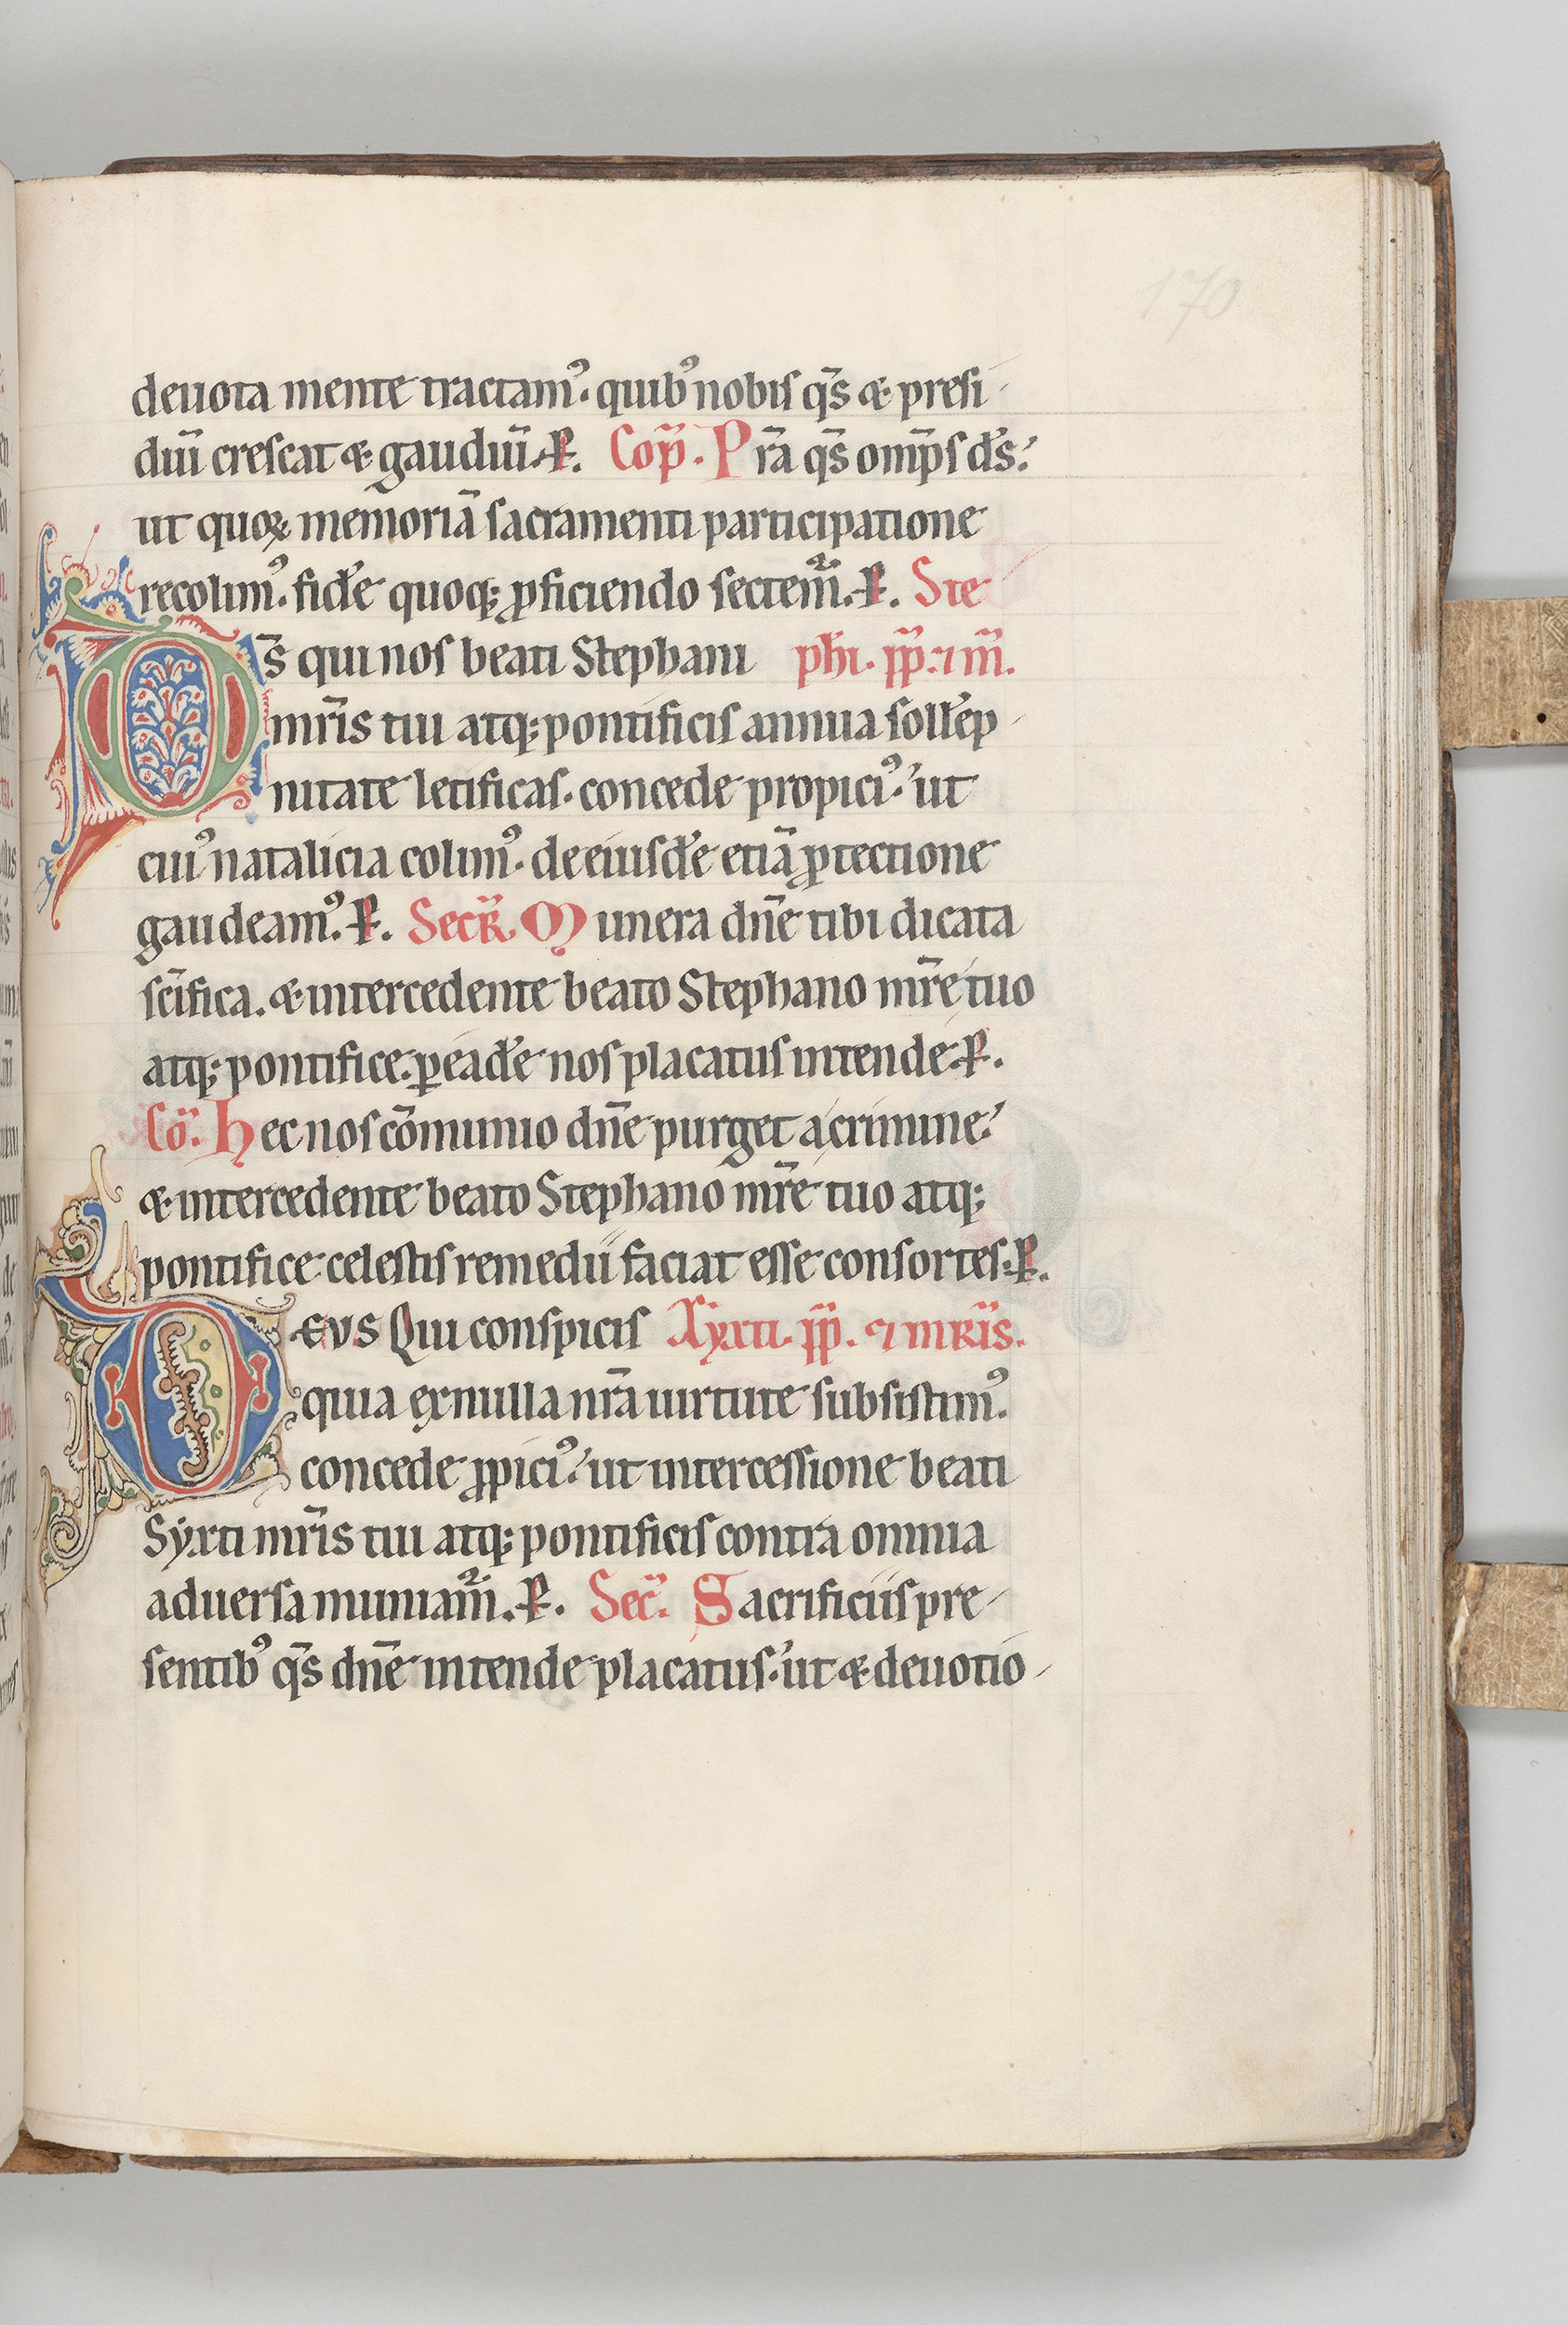 170
deuota mente tractam᾽. quib᾽ nobis q̄s & presi-
diū crescat & gaudiū. P. Cōp. Prā q̄s omp̄s d̄s.
ut quoꝝ memoriā sacramenti participatione
recolim᾽. fid̄e quoq; ꝓficiendo sectem̄. P. Ste
D s̄ qui nos beati Stephani phi. pp̄. ⁊ m̄.
mr̄is tui atq; pontificis annua soll̄ēp-
nitate letificas. concede propici᾽. ut
cui᾽ natalicia colim᾽. de eiusd̄e etiā ꝓtectione
gaudeam᾽. P. Secr̄. Munera dn̄e tibi dicata
sc̄ifica. & intercedente beato Stephano mr̄e tuo
atq; pontifice. ꝑ ead̄e nos placatus intende. P.
Cō. Hec nos cōmunio dn̄e purget a crimine.
& intercedente beato Stephano mr̄e tuo atq;
pontifice celestis remedii faciat esse consortes. P.
DEVS Qui conspicis Xyxti. pp̄. ⁊ mr̄is.
quia ex nulla nr̄a uirtute subsistim᾽.
concede ꝓpici᾽. ut intercessione beati
Syxti mr̄is tui atq; pontificis contra omnia
aduersa muniam̄. P. Sec̄. Sacrificiis pre-
sentib᾽ q̄s dn̄e intende placatus. ut & deuotio-